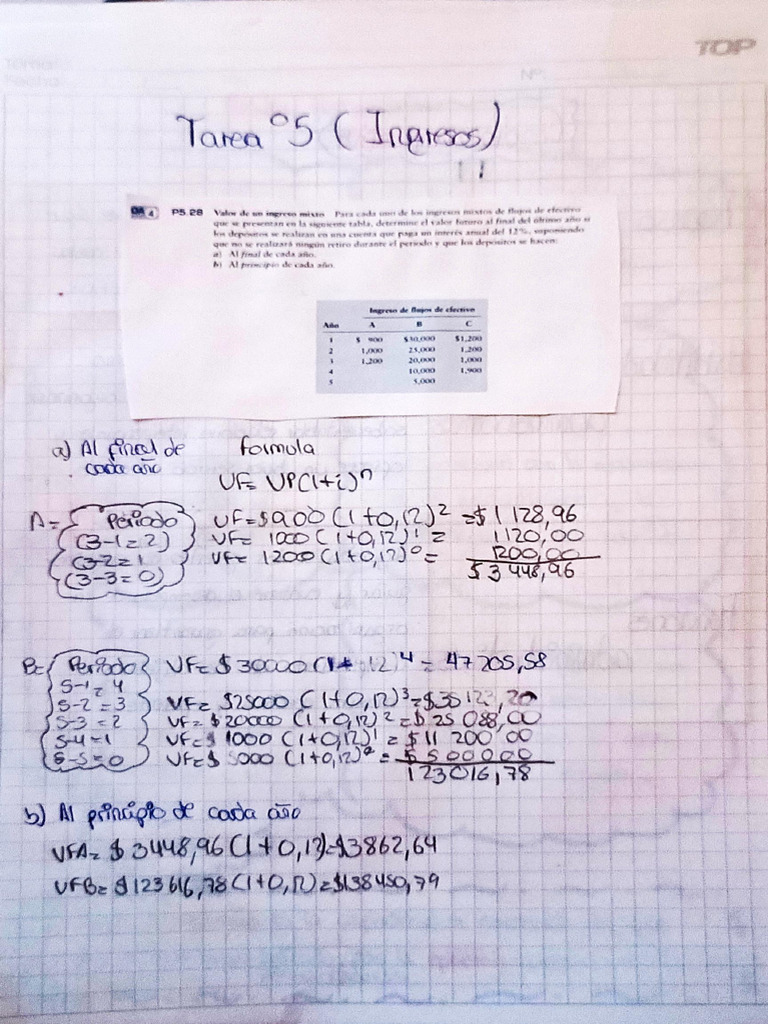 TOP
Tarea °5 (Ingresos)
OA 4 P5.28 Valor de un ingreso mixto Para cada uno de los ingresos mixtos de flujos de efectivo
que se presentan en la siguiente tabla, determine el valor futuro al final del último año si
los depósitos se realizan en una cuenta que paga un interés anual del 12%, suponiendo
que no se realizará ningún retiro durante el periodo y que los depósitos se hacen:
a) Al final de cada año.
b) Al principio de cada año.
Ingreso de flujos de efectivo
Año A B C
1 $ 900 $30,000 $1,200
2 1,000 25,000 1,200
3 1,200 20,000 1,000
4 10,000 1,900
5 5,000
a) Al final de formula
cada año
VF= VP(1+i)^n
A= Periodo VF=$900 (1+0,12)² =$1128,96
(3-1=2) VF= 1000 (1+0,12)¹ = 1120,00
(3-2=1 VF= 1200(1+0,12)⁰= 1200,00
(3-3=0) $3448,96
B= Periodo VF= $30000 (1+ ,12)⁴ = 47205,58
5-1=4
5-2=3 VF= $25000 (1+0,12)³=$35123,20
5-3=2 VF= $20000 (1+0,12)²=$25088,00
5-4=1 VF=$ 1000 (1+0,12)¹ = $11200,00
5-5=0 VF=$ 5000 (1+0,12)⁰ = $500000
123016,78
b) Al principio de cada año
VFA= $3448,96(1+0,12)=$3862,64
VFB= $123616,78(1+0,12)=$138450,79